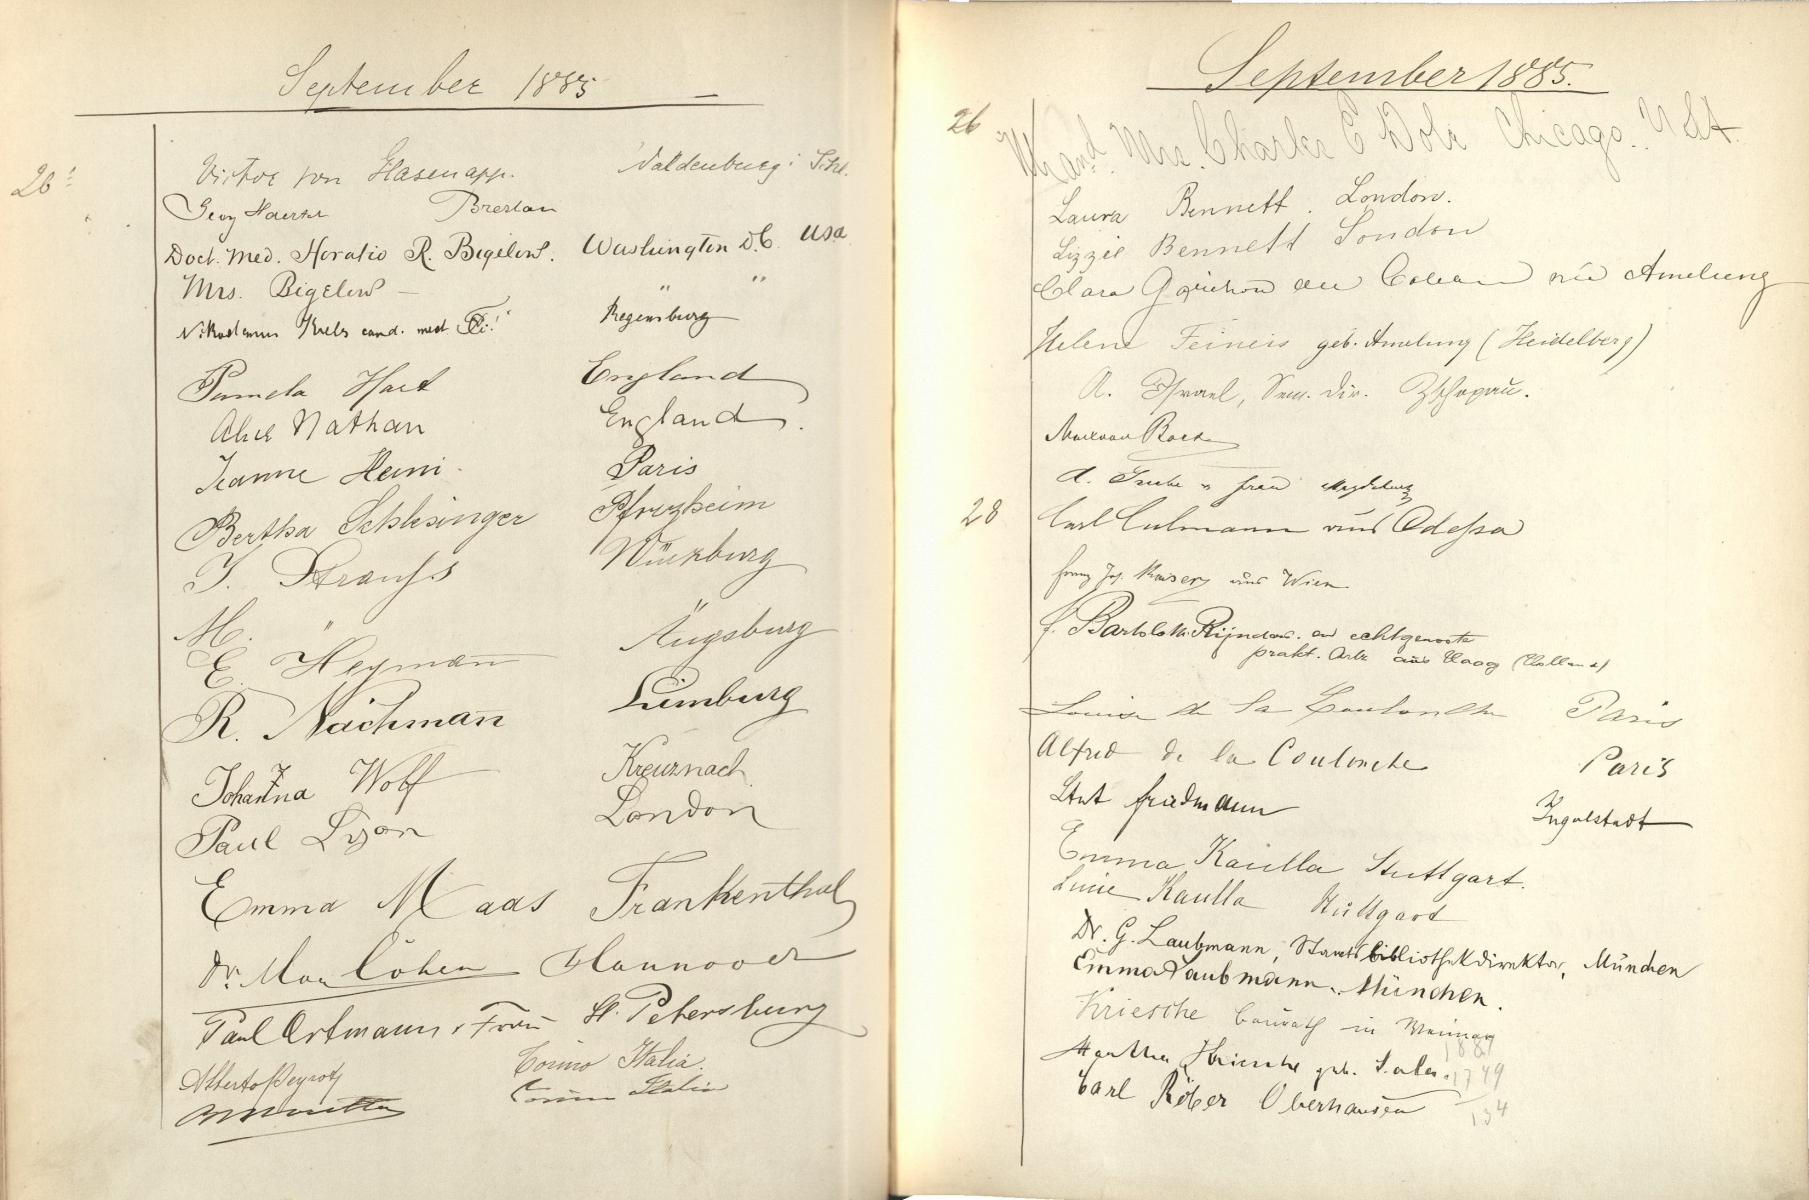 September 1885
26
Victor von Hasenapp. Waldenburg i Schl.
Georg Breslau
Doct. Med. Horatio R. Bigelow. Washington D.C. USA
Mrs. Bigelow — " "
Nikodemus Krebs cand. med. Regensburg
Pamela Hart England
Alice Nathan England.
Jeanne Henri Paris
Bertha Schlesinger Pforzheim
J. Strauss Würzburg
M. "
E. Heyman Augsburg
R. Nachman Limburg
Johanna Wolf Kreuznach
Paul Lyon London
Emma Maas Frankenthal
Dr. Max Cohen Hannover
Paul Ortmann u Frau St. Petersburg
Alberto Peyrot Torino Italia.
Torino Italia
September 1885.
26 Mr and Mrs. Charles E Dole Chicago. USA.
Laura Bennett. London.
Lizzie Bennett London
Clara née Amelung
Helene geb. Amelung (Heidelberg)
A. Israel, Sem. Dir. Zschopau.
A. u frau Magdeburg
28 Carl Culmann aus Odessa
Franz Jos. Kaiser aus Wien
en echtgenoote
prakt. Arts aus Haag (Holland)
Louise de la Coulonche Paris
Alfred de la Coulonche Paris
Friedmann Ingolstadt
Emma Kaulla Stuttgart.
Luise Kaulla Stuttgart
Dr. G. Laubmann, Staatsbibliothekdirektor, München
Emma Laubmann. München.
Kriesche Baurath in Weimar
1884
Martha Kriesche geb.
1749
Carl Röber Oberhausen
134